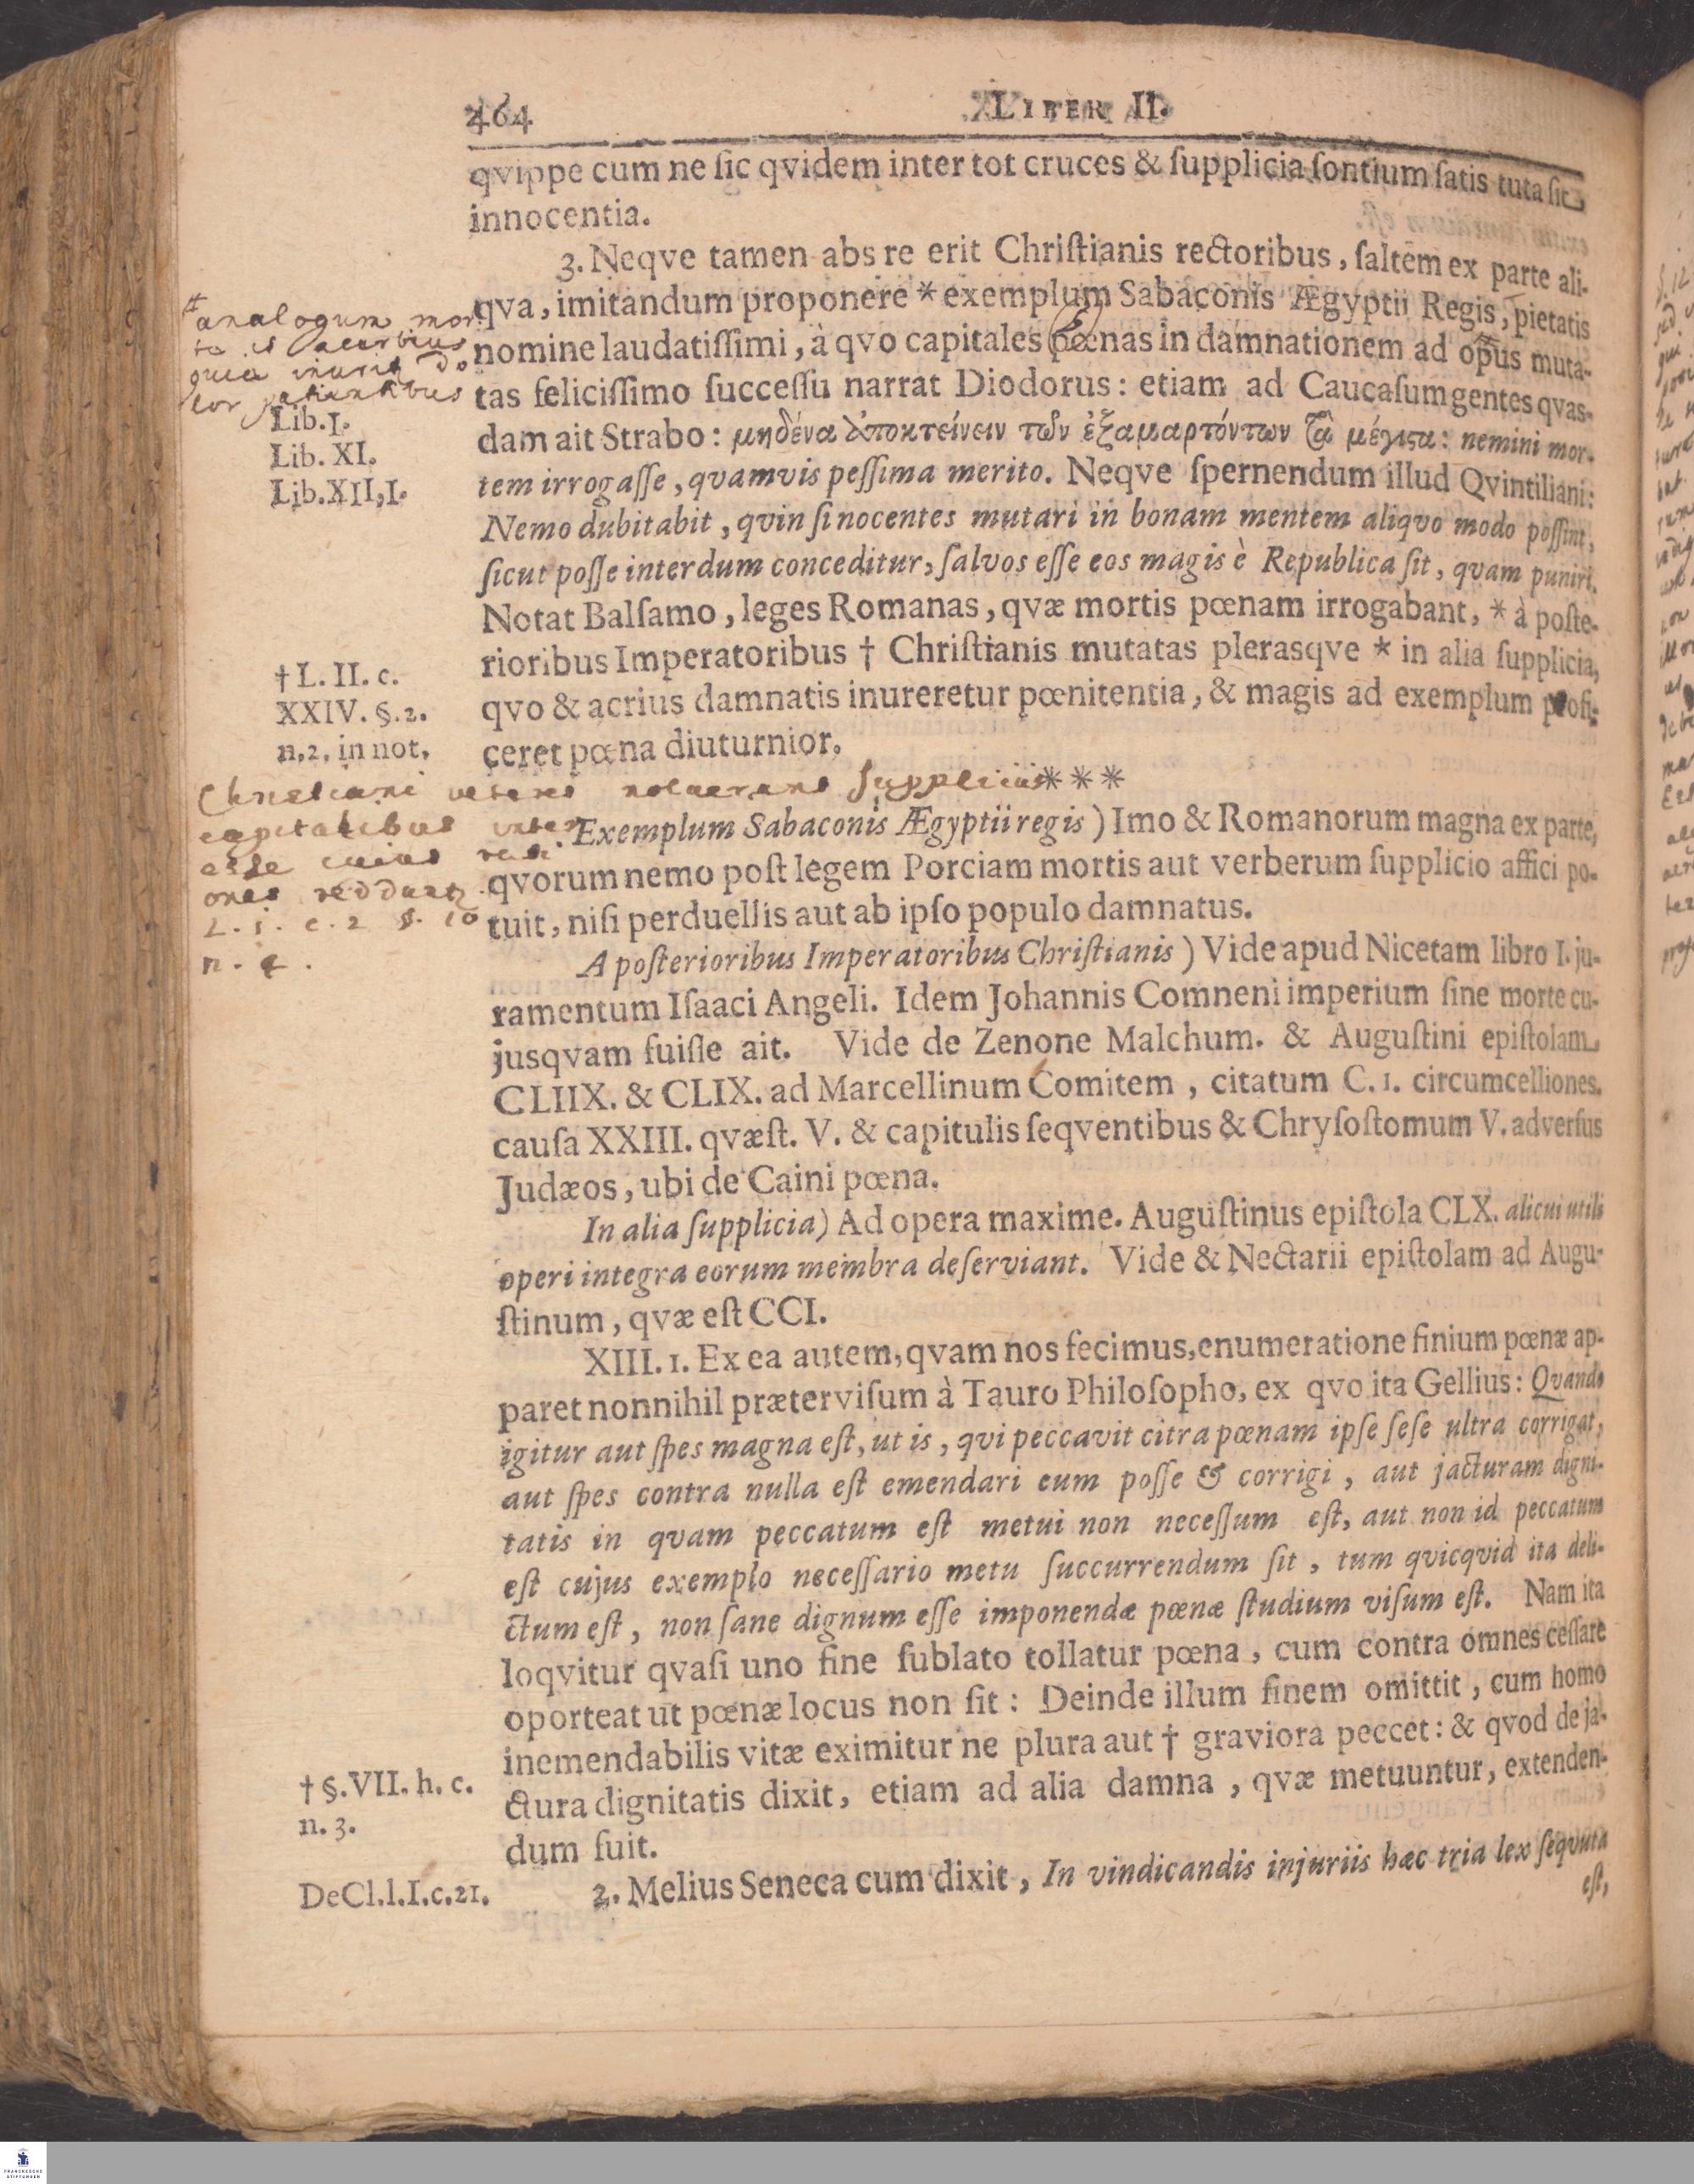 464 LIBER II.
qvippe cum ne ſic qvidem inter tot cruces & ſupplicia ſontium ſatis tuta ſit
innocentia.
3. Neqve tamen abs re erit Chriſtianis rectoribus, ſaltem ex parte ali-
qva, imitandum proponere * exemplum Sabaconis Ægyptii Regis, pietatis
nomine laudatiſſimi, à qvo capitales pœnas in damnationem ad opus muta-
tas feliciſſimo ſucceſſu narrat Diodorus: etiam ad Caucaſum gentes qvas-
dam ait Strabo: μηδένα ἀποκτείνειν τῶν ἐξαμαρτόντων τὰ μέγιϛα: nemini mor-
tem irrogaſſe, quamvis peſſima merito. Neqve ſpernendum illud Qvintiliani:
Nemo dubitabit, qvin ſi nocentes mutari in bonam mentem aliqvo modo poſſint,
ſicut poſſe interdum conceditur, ſalvos eſſe eos magis è Republica ſit, qvam puniri.
Notat Balſamo, leges Romanas, qvæ mortis pœnam irrogabant, * à poſte-
rioribus Imperatoribus † Chriſtianis mutatas plerasqve * in alia ſupplicia,
qvo & acrius damnatis inureretur pœnitentia, & magis ad exemplum profi-
ceret pœna diuturnior.
analogum mor
quia
dolor patientibus
Lib. I.
Lib. XI.
Lib. XII, I.
† L. II. c.
XXIV. §. 2.
n. 2, in not.
Christiani veteres noluerunt suppliciis
capitalibus
esse cuius rati
ones reddunt
L. 1. c. 2 §. 10
n.
***
Exemplum Sabaconis Ægyptii regis) Imo & Romanorum magna ex parte,
qvorum nemo poſt legem Porciam mortis aut verberum ſupplicio affici po-
tuit, niſi perduellis aut ab ipſo populo damnatus.
A poſterioribus Imperatoribus Chriſtianis) Vide apud Nicetam libro I. ju-
ramentum Iſaaci Angeli. Idem Johannis Comneni imperium ſine morte cu-
jusqvam fuiſſe ait. Vide de Zenone Malchum. & Auguſtini epiſtolam
CLIIX. & CLIX. ad Marcellinum Comitem, citatum C. 1. circumcelliones.
cauſa XXIII. qvæſt. V. & capitulis ſeqventibus & Chryſoſtomum V. adverſus
Judæos, ubi de Caini pœna.
In alia ſupplicia) Ad opera maxime. Auguſtinus epiſtola CLX. alicui utili
operi integra eorum membra deſerviant. Vide & Nectarii epiſtolam ad Augu-
ſtinum, qvæ eſt CCI.
XIII. 1. Ex ea autem, qvam nos fecimus, enumeratione finium pœnæ ap-
paret nonnihil præterviſum à Tauro Philoſopho, ex qvo ita Gellius: Qvando
igitur aut ſpes magna eſt, ut is, qvi peccavit citra pœnam ipſe ſeſe ultra corrigat,
aut ſpes contra nulla eſt emendari eum poſſe & corrigi, aut jacturam digni-
tatis in qvam peccatum eſt metui non neceſſum eſt, aut non id peccatum
eſt cujus exemplo neceſſario metu ſuccurrendum ſit, tum qvicqvid ita deli-
ctum eſt, non ſane dignum eſſe imponendæ pœnæ ſtudium viſum eſt. Nam ita
loqvitur qvaſi uno fine ſublato tollatur pœna, cum contra omnes ceſſare
oporteat ut pœnæ locus non ſit: Deinde illum finem omittit, cum homo
inemendabilis vitæ eximitur ne plura aut † graviora peccet: & qvod de ja-
ctura dignitatis dixit, etiam ad alia damna, qvæ metuuntur, extenden-
dum fuit.
† §. VII. h. c.
n. 3.
De Cl. l. I. c. 21.
2. Melius Seneca cum dixit, In vindicandis injuriis hæc tria lex ſeqvuta
eſt,